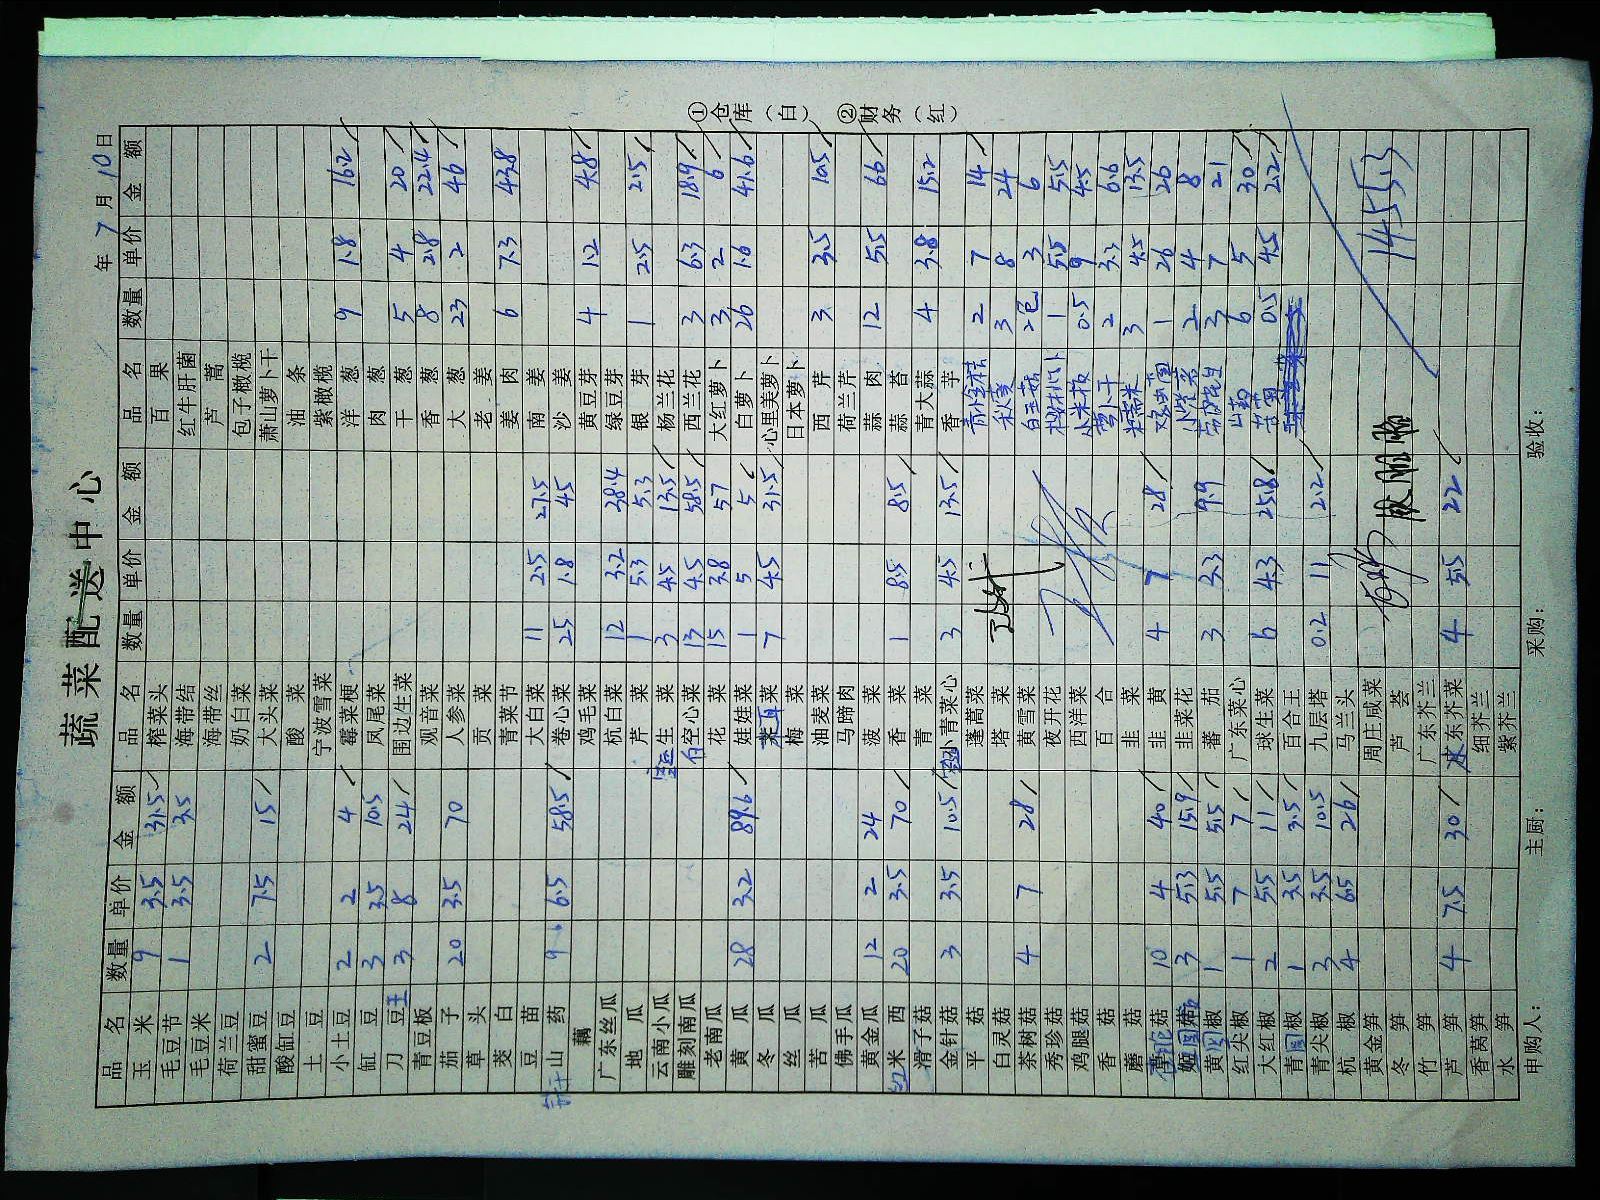 蔬菜配送中心
年 7 月 10 日
品名 数量 单价 金额 品名 数量 单价 金额 品名 数量 单价 金额
玉米 9 3.5 31.5 榨菜头 百果
毛豆节 1 3.5 3.5 海带结 红牛肝菌
毛豆米 海带丝 芦蒿
荷兰豆 奶白菜 包子橄榄
甜蜜豆 2 7.5 15 大头菜 萧山萝卜干
酸缸豆 酸菜 油条
土豆 宁波雪菜 紫橄榄
小土豆 2 2 4 霉菜梗 洋葱 9 1.8 16.2
缸豆 3 3.5 10.5 凤尾菜 肉葱
刀豆王 3 8 24 围边生菜 干葱 5 4 20
青豆板 观音菜 香葱 8 2.8 22.4
茄子 20 3.5 70 人参菜 大葱 23 2 46
草头 贡菜 老姜
茭白 青菜节 姜肉 6 7.3 43.8
豆苗 大白菜 11 2.5 27.5 南姜
山药 9 6.5 58.5 卷心菜 25 1.8 45 沙姜
藕 鸡毛菜 黄豆芽 4 1.2 4.8
广东丝瓜 杭白菜 12 3.2 38.4 绿豆芽
地瓜 芹菜 1 5.3 5.3 银芽 1 2.5 2.5
云南小瓜 生菜 3 4.5 13.5 杨兰花
雕刻南瓜 白空心菜 13 4.5 58.5 西兰花 3 6.3 18.9
老南瓜 花菜 15 3.8 57 大红萝卜 3 2 6
黄瓜 28 3.2 89.6 娃娃菜 1 5 5 白萝卜 26 1.6 41.6
冬瓜 菜 7 4.5 31.5 心里美萝卜
丝瓜 梅菜 日本萝卜
苦瓜 油麦菜 西芹 3 3.5 10.5
佛手瓜 马蹄肉 荷兰芹
黄金瓜 12 2 24 菠菜 蒜肉 12 5.5 66
红米西 20 3.5 70 香菜 1 8.5 8.5 蒜苔
滑子菇 青菜 青大蒜 4 3.8 15.2
金针菇 3 3.5 10.5 小青菜心 3 4.5 13.5 香芋
平菇 蓬蒿菜 2 7 14
白灵菇 塔菜 秋葵 3 8 24
茶树菇 4 7 28 黄雪菜 白玉菇 2包 3 6
秀珍菇 夜开花 1 5.5 5.5
鸡腿菇 西洋菜 小米椒 0.5 9 4.5
香菇 百合 萝卜干 2 3.3 6.6
蘑菇 韭菜 糯米 3 4.5 13.5
菇 10 4 40 韭黄 4 7 28 1 26 26
菇 3 5.3 15.9 韭菜花 2 4 8
黄椒 1 5.5 5.5 蕃茄 3 3.3 9.9 花生 3 7 21
红尖椒 1 7 7 广东菜心 山药 6 5 30
大红椒 2 5.5 11 球生菜 6 4.3 25.8 苦菊 0.5 4.5 2.2
青圆椒 1 3.5 3.5 百合王
青尖椒 3 3.5 10.5 九层塔 0.2 11 2.2
杭椒 4 6.5 26 马兰头
黄金笋 周庄咸菜 1455.3
冬笋 芦荟
竹笋 广东芥兰
芦笋 4 7.5 30 水东芥菜 4 5.5 22
香莴笋 细芥兰
水笋 紫芥兰
申购人: 主厨: 采购: 验收:
①仓库(白) ②财务(红)